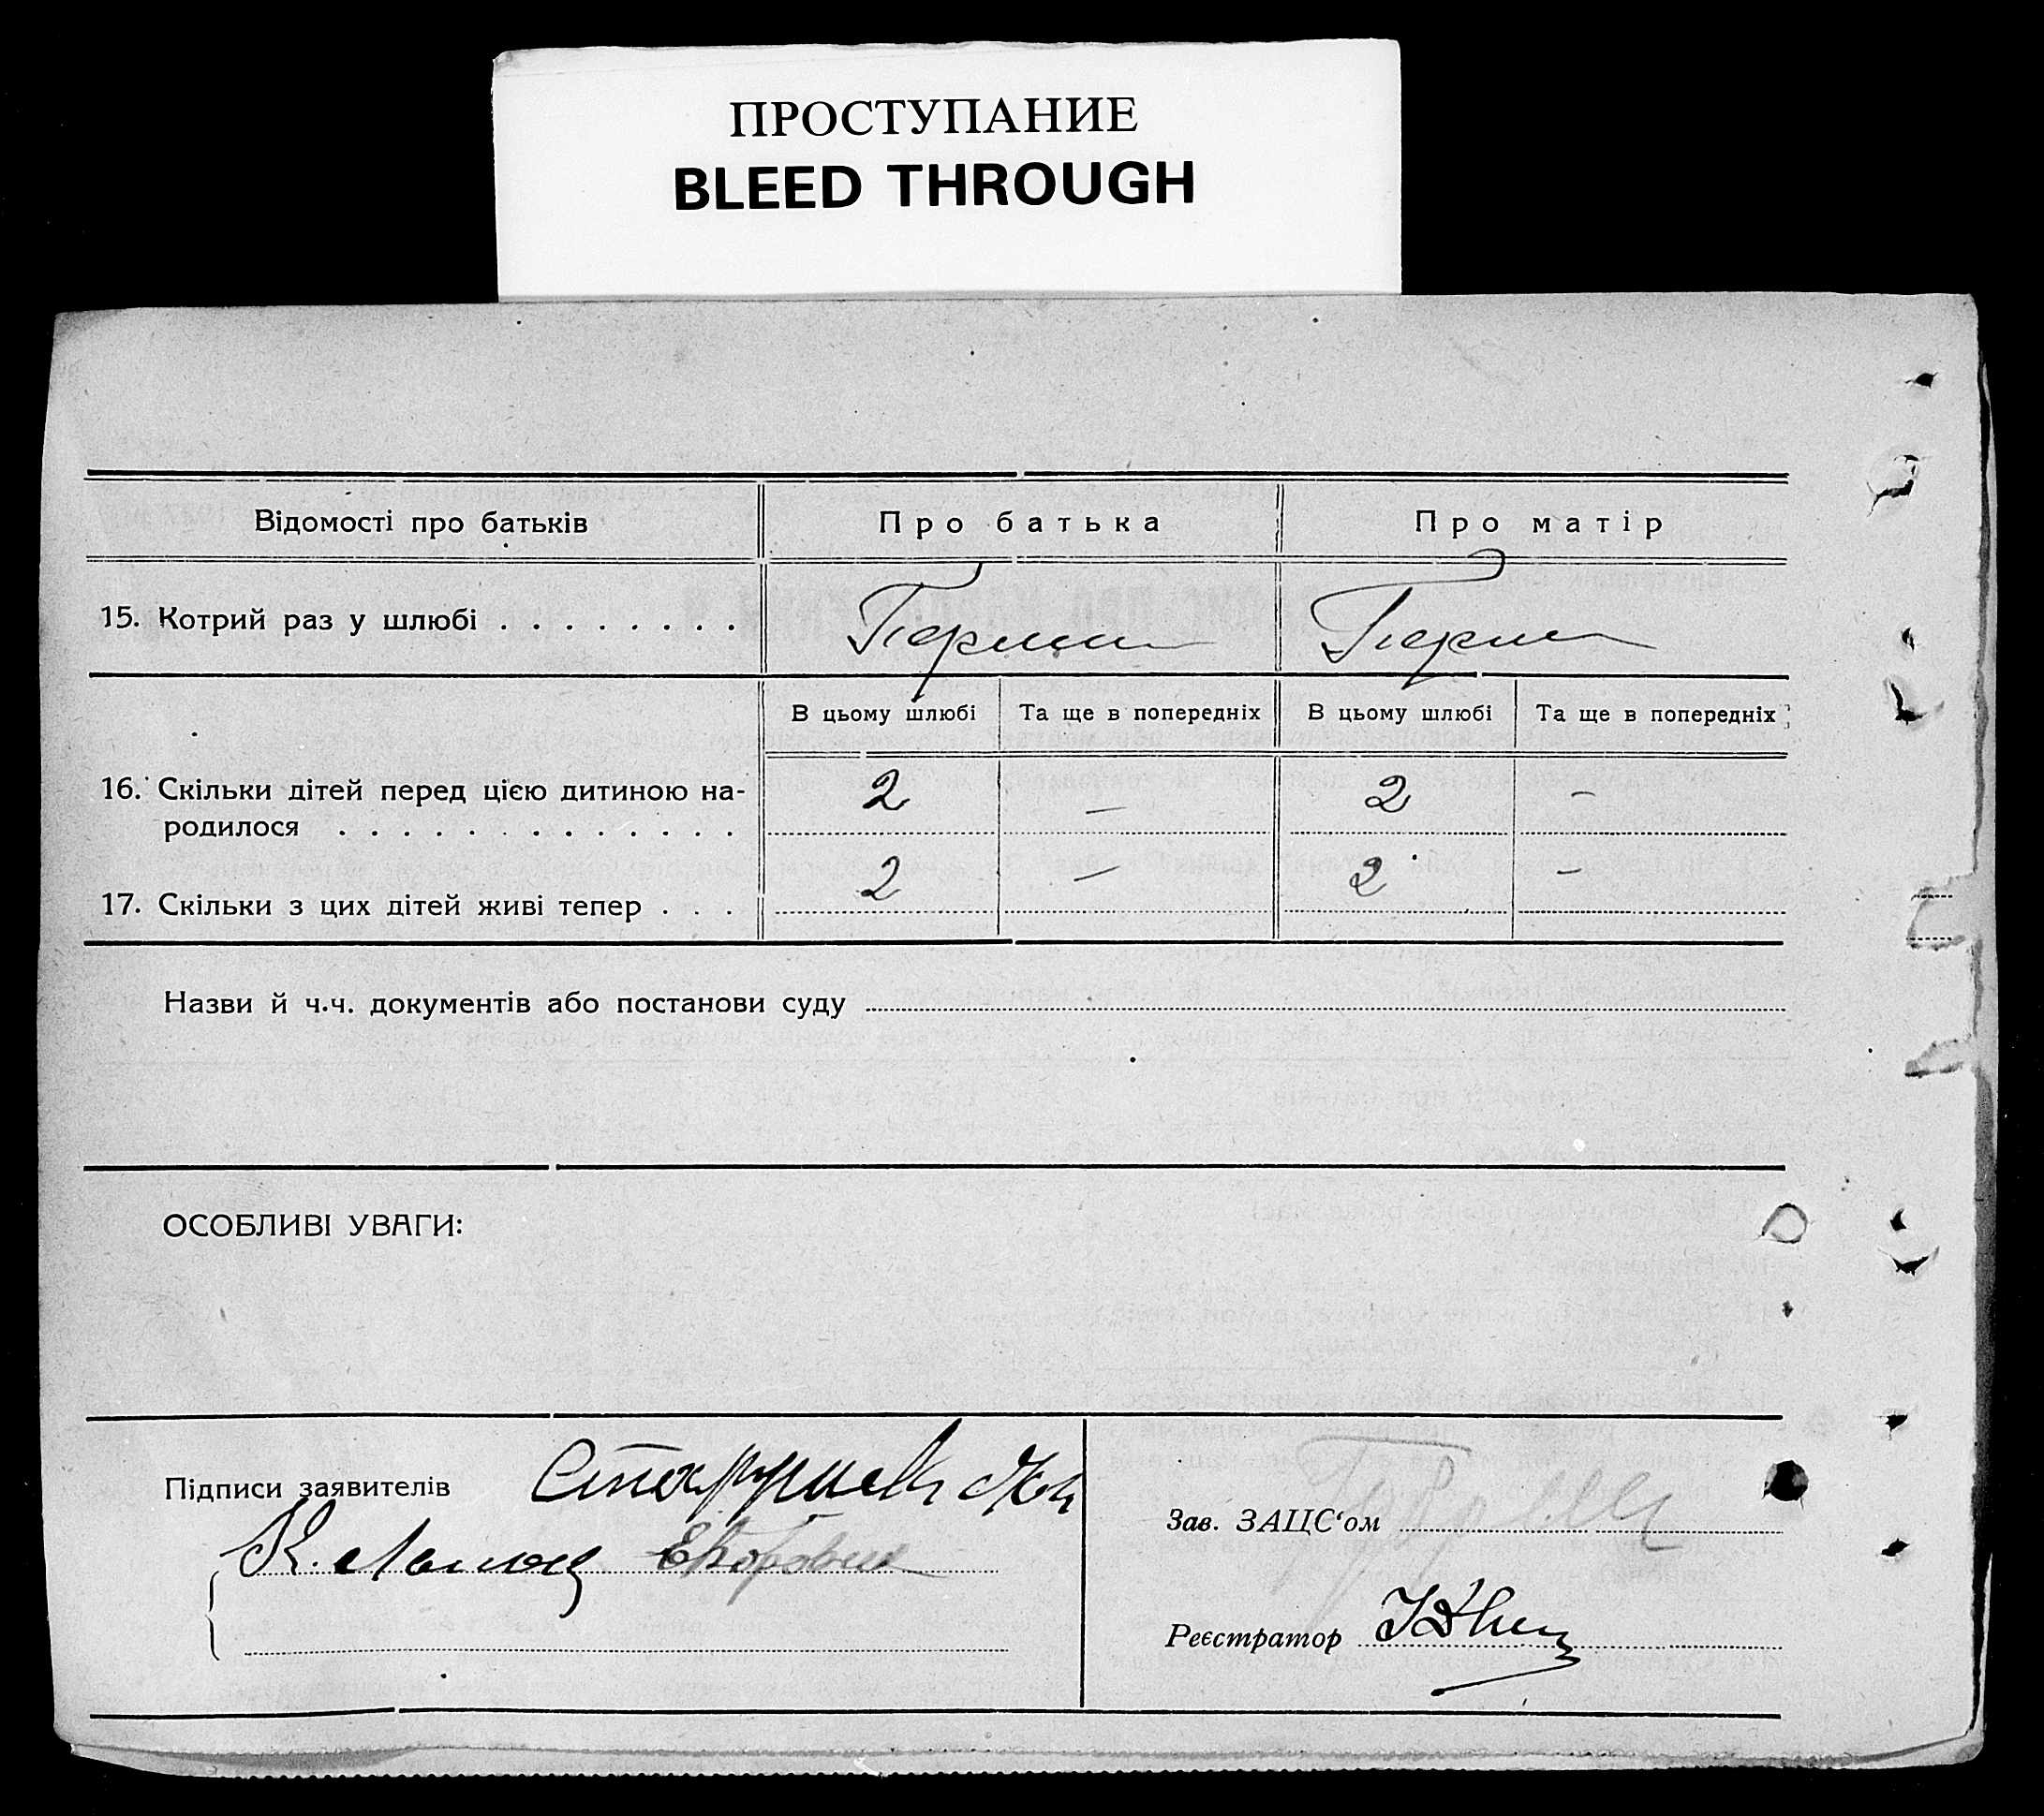 ПРОСТУПАНИЕ
BLEED THROUGH
Відомості про батьків
Про батька
Про матір
15. Котрий раз у шлюбі . . . . . . . .
В цьому шлюбі
Та ще в попередніх
В цьому шлюбі
Та ще в попередніх
16. Скільки дітей перед цією дитиною на-
родилося . . . . . . . . . . . . .
2 — 2 —
17. Скільки з цих дітей живі тепер . . .
2 — 2 —
Назви й ч.ч. документів або постанови суду
ОСОБЛИВІ УВАГИ:
Підписи заявителів
Зав. ЗАЦС'ом
Реєстратор